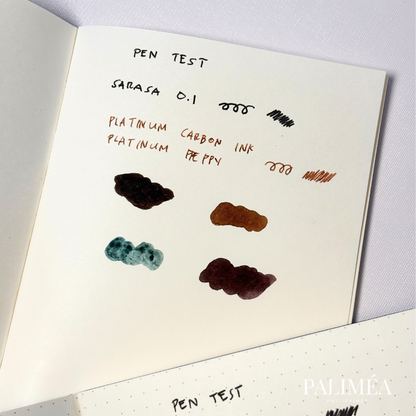 PEN TEST
SARASA 0.1
PLATINUM CARBON INK
PLATINUM PREPPY
PEN TEST
PALIMÉA